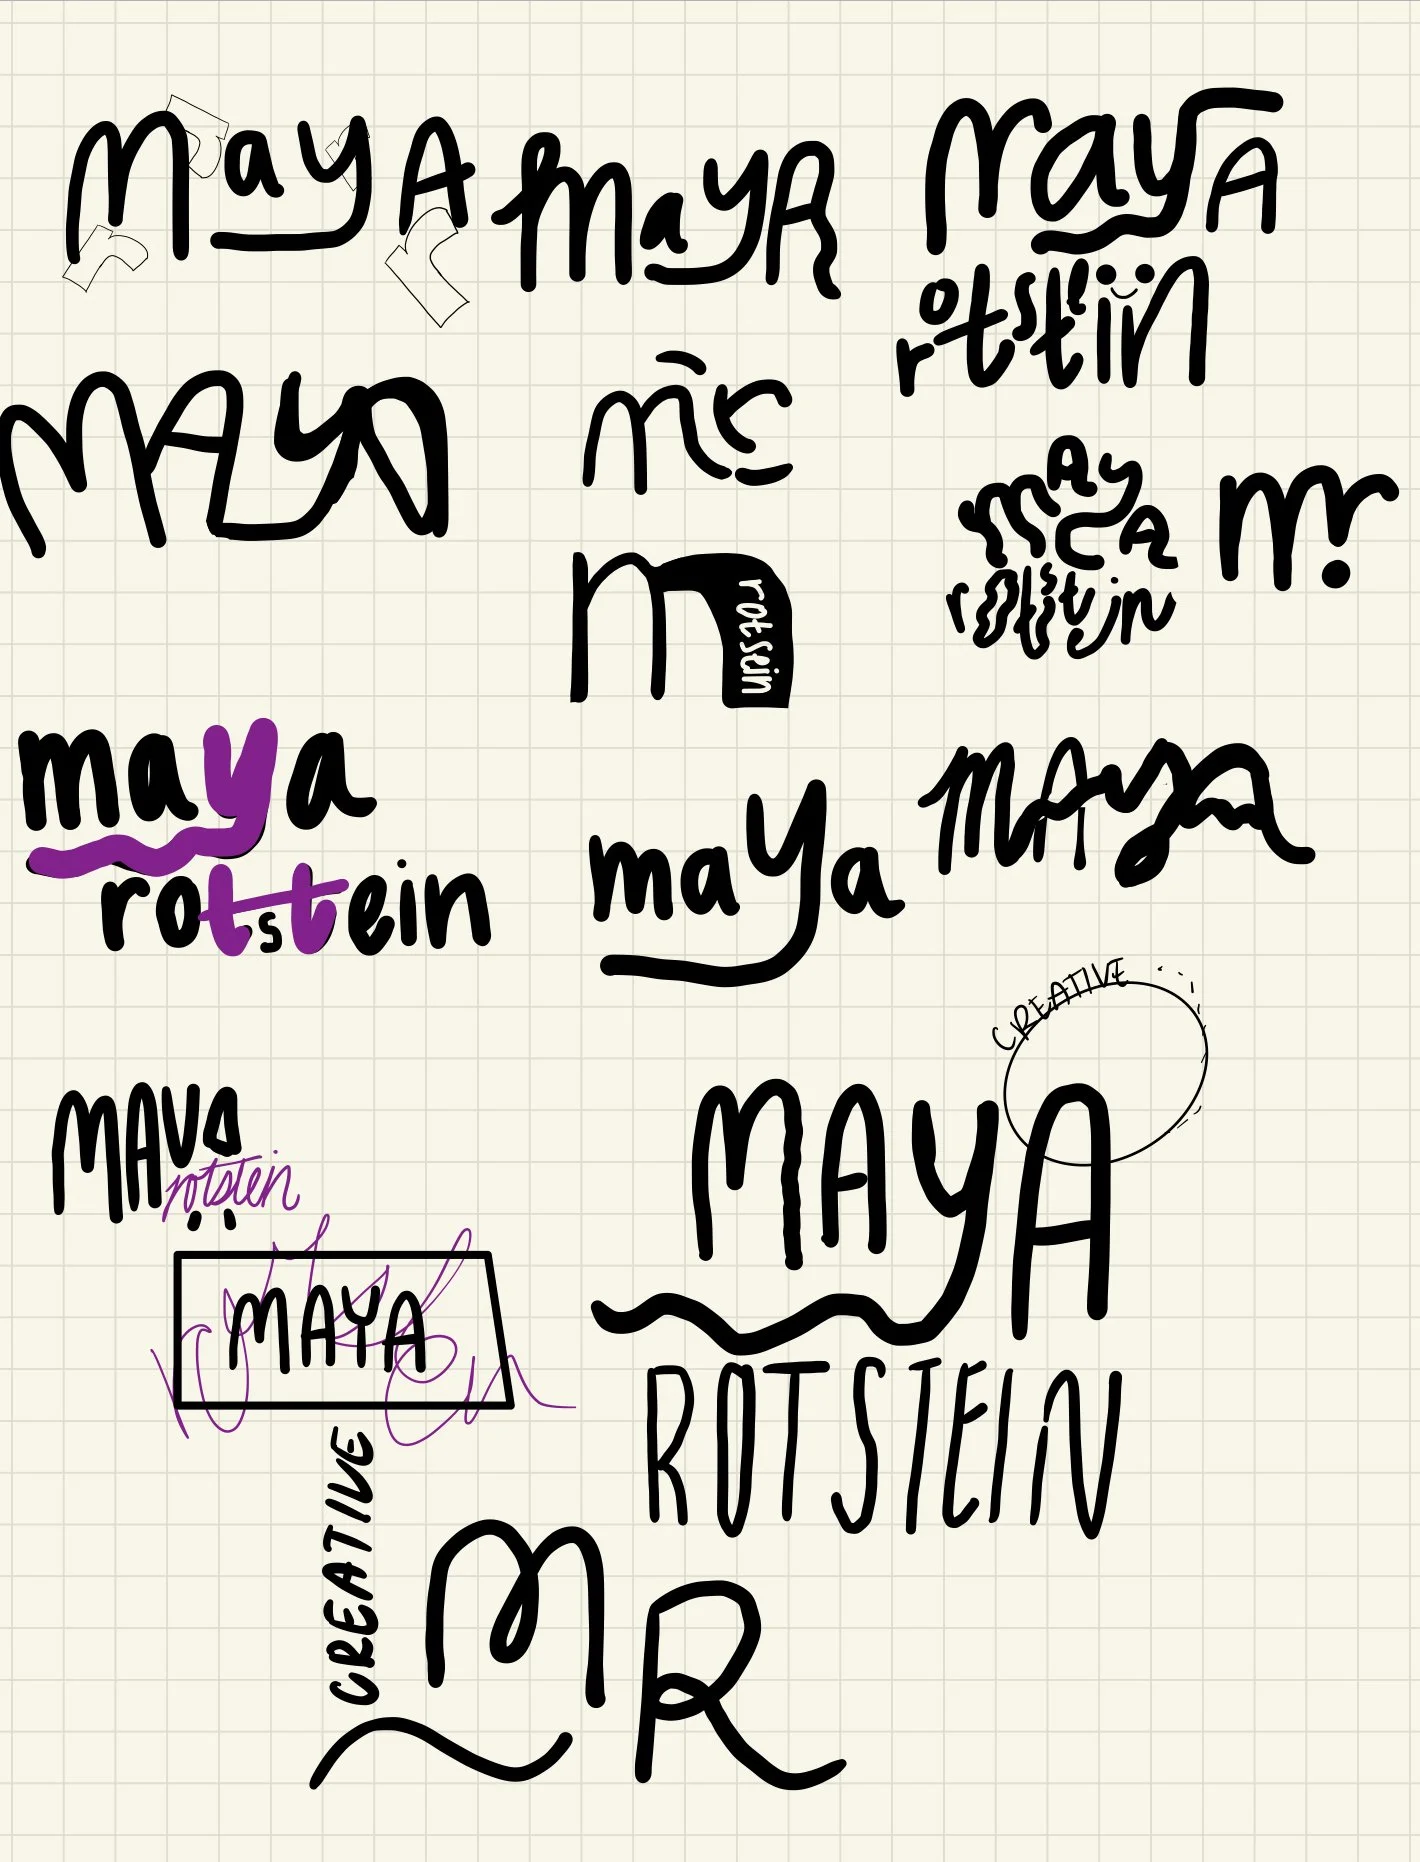 maya
maya
maya
rotstein
MAya
mr
maya
rotstein
mr
m
rotsein
maya
rotstein
maya
MAya
CREATIVE
MAYA
rotstein
MAYA
ROTSTEIN
MAYA
CREATIVE
MR